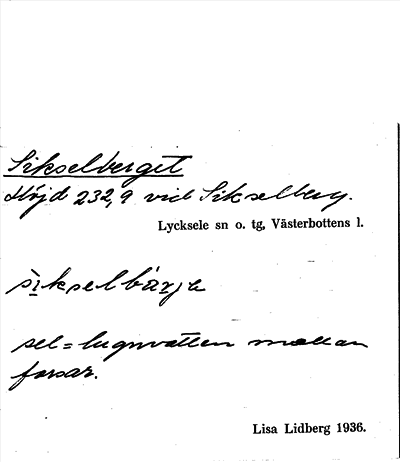 Sikselberget
Höjd 232,9 vid Sikselberg.
Lycksele sn o. tg, Västerbottens l.
sikselbärje
sel = lugnvatten mellan
forsar.
Lisa Lidberg 1936.